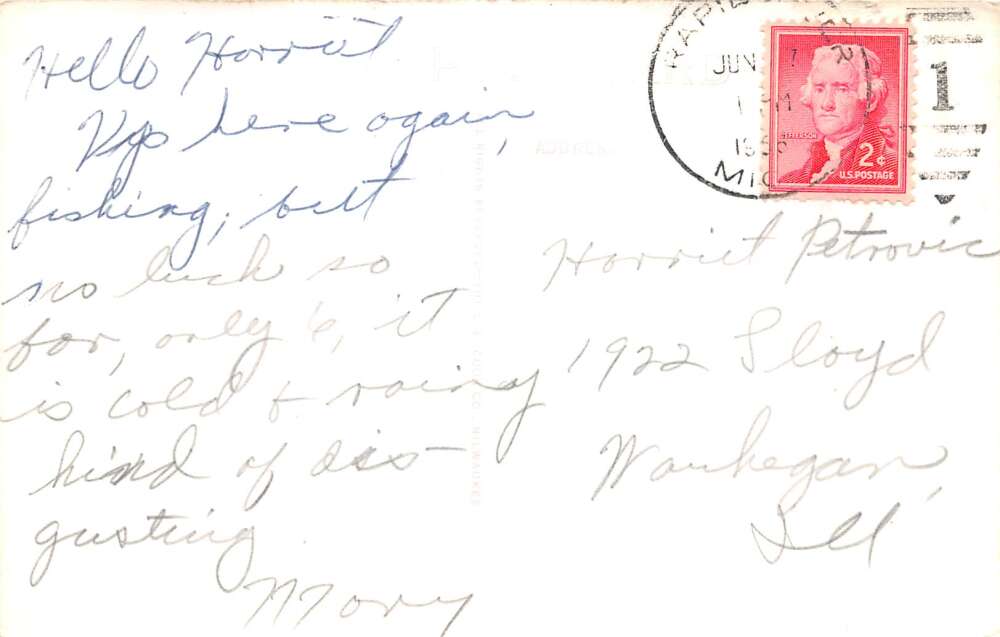 Hello Harriet
Up here again,
fishing, but
no luck so
far, only 6, it
is cold & rainy
kind of dis-
gusting
Mary
RAPID
JUN 7
1 PM
1956
MICH
JEFFERSON
2¢
U.S. POSTAGE
1
ADDRESS
Harriet Petrovic
1922 Lloyd
Waukegan,
Ill